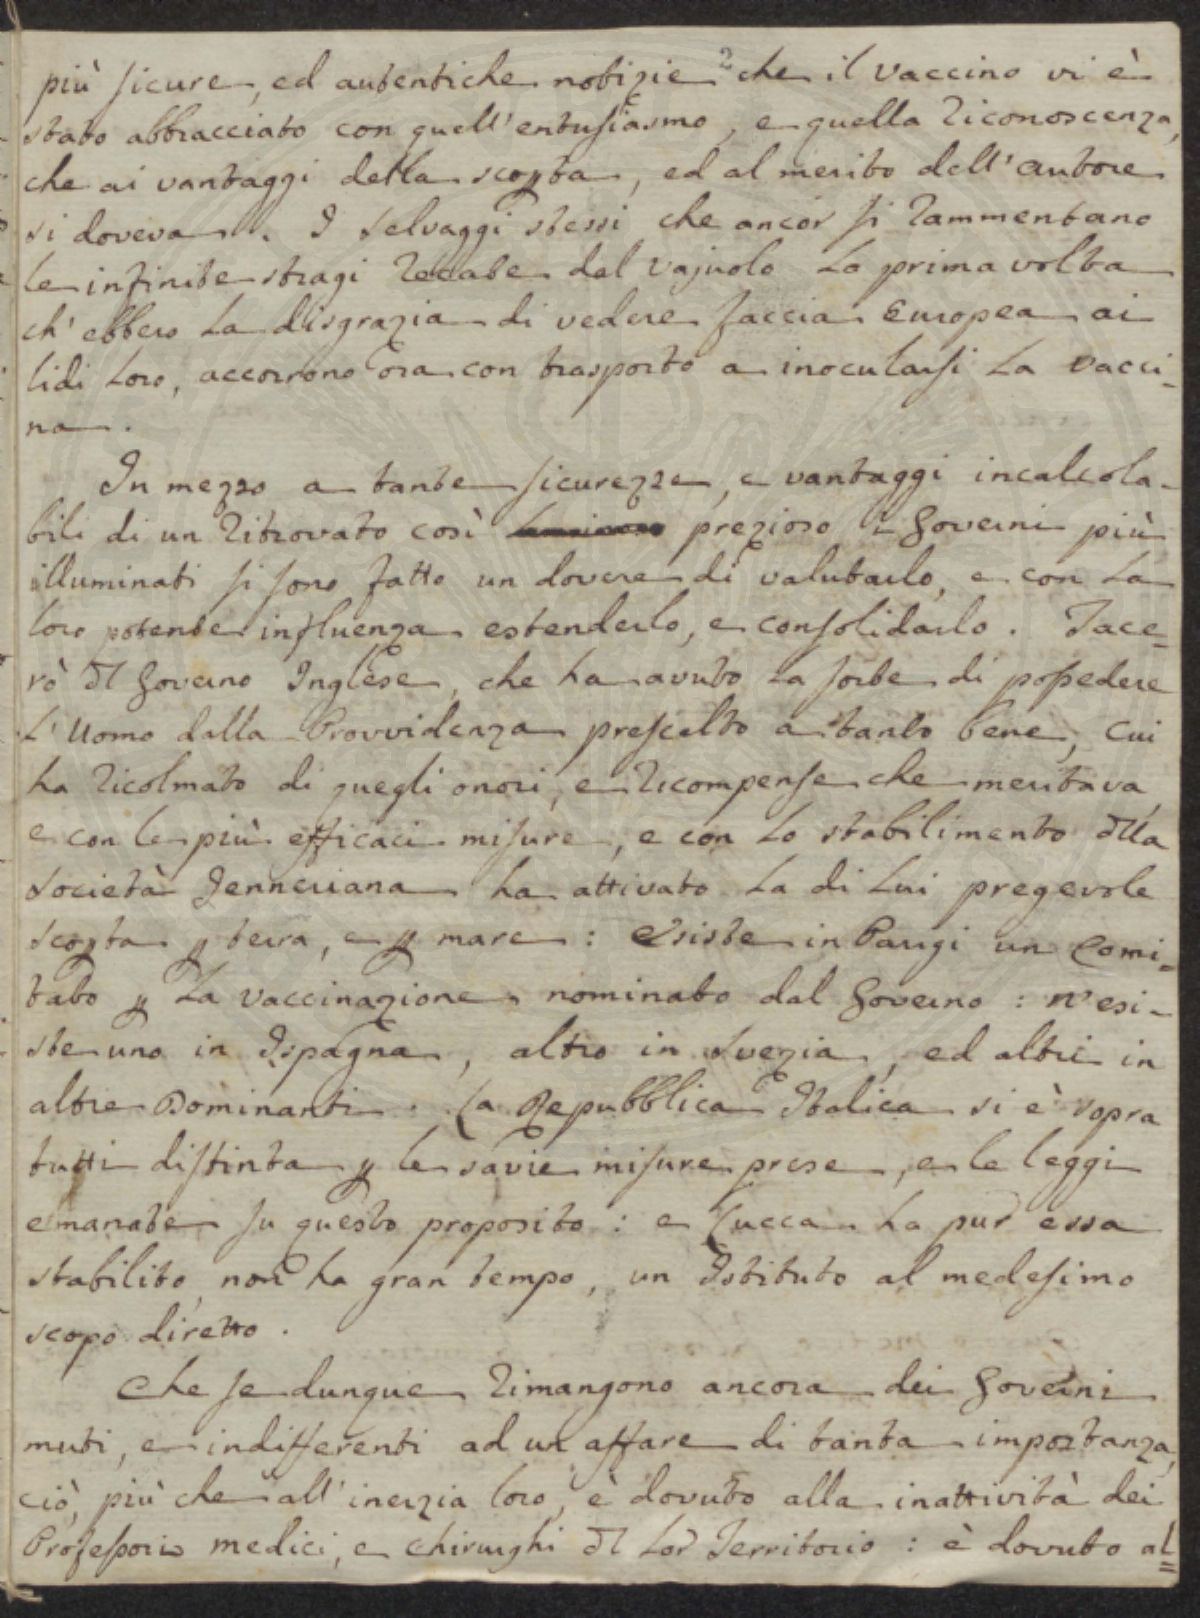 più sicure, ed autentiche notizie che il vaccino vi è
stato abbracciato con quell'entusiasmo, e quella riconoscenza,
che ai vantaggi della scopta, ed al merito dell'autore
si doveva. I selvaggi stessi che ancor si rammentano
le infinite stragi recate dal vajuolo la prima volta
ch'ebbero la disgrazia di vedere faccia Europea ai
lidi loro, accorrono ora con trasporto a inocularsi la vacci-
na.
In mezzo a tante sicurezze, e vantaggi incalcola-
bili di un ritrovato così prezioso i Governi più
illuminati si sono fatto un dovere di valutarlo, e con la
loro potente influenza estenderlo, e consolidarlo. Tace-
rò dl Governo Inglese, che ha avuto la sorte di possedere
l'Uomo dalla Provvidenza prescelto a tanto bene, cui
ha ricolmato di quegli onori, e ricompense che meritava,
e con le più efficaci misure, e con lo stabilimento dlla
Società Jenneriana ha attivato la di lui pregevole
scopta p terra, e p mare: Esiste in Parigi un Comi-
tato p la vaccinazione nominato dal Governo: n'esi-
ste uno in Ispagna, altro in Svezia, ed altri in
altre Dominanti. La Repubblica Italica si è sopra
tutti distinta p le savie misure prese, e le leggi
emanate su questo proposito: e Lucca ha pur essa
stabilito, non ha gran tempo, un Istituto al medesimo
scopo diretto.
Che se dunque rimangono ancora dei Governi
muti, e indifferenti ad un affare di tanta importanza,
ciò, più che all'inerzia loro, è dovuto alla inattività dei
Professori medici, e chirurghi dl lor Territorio: è dovuto al=